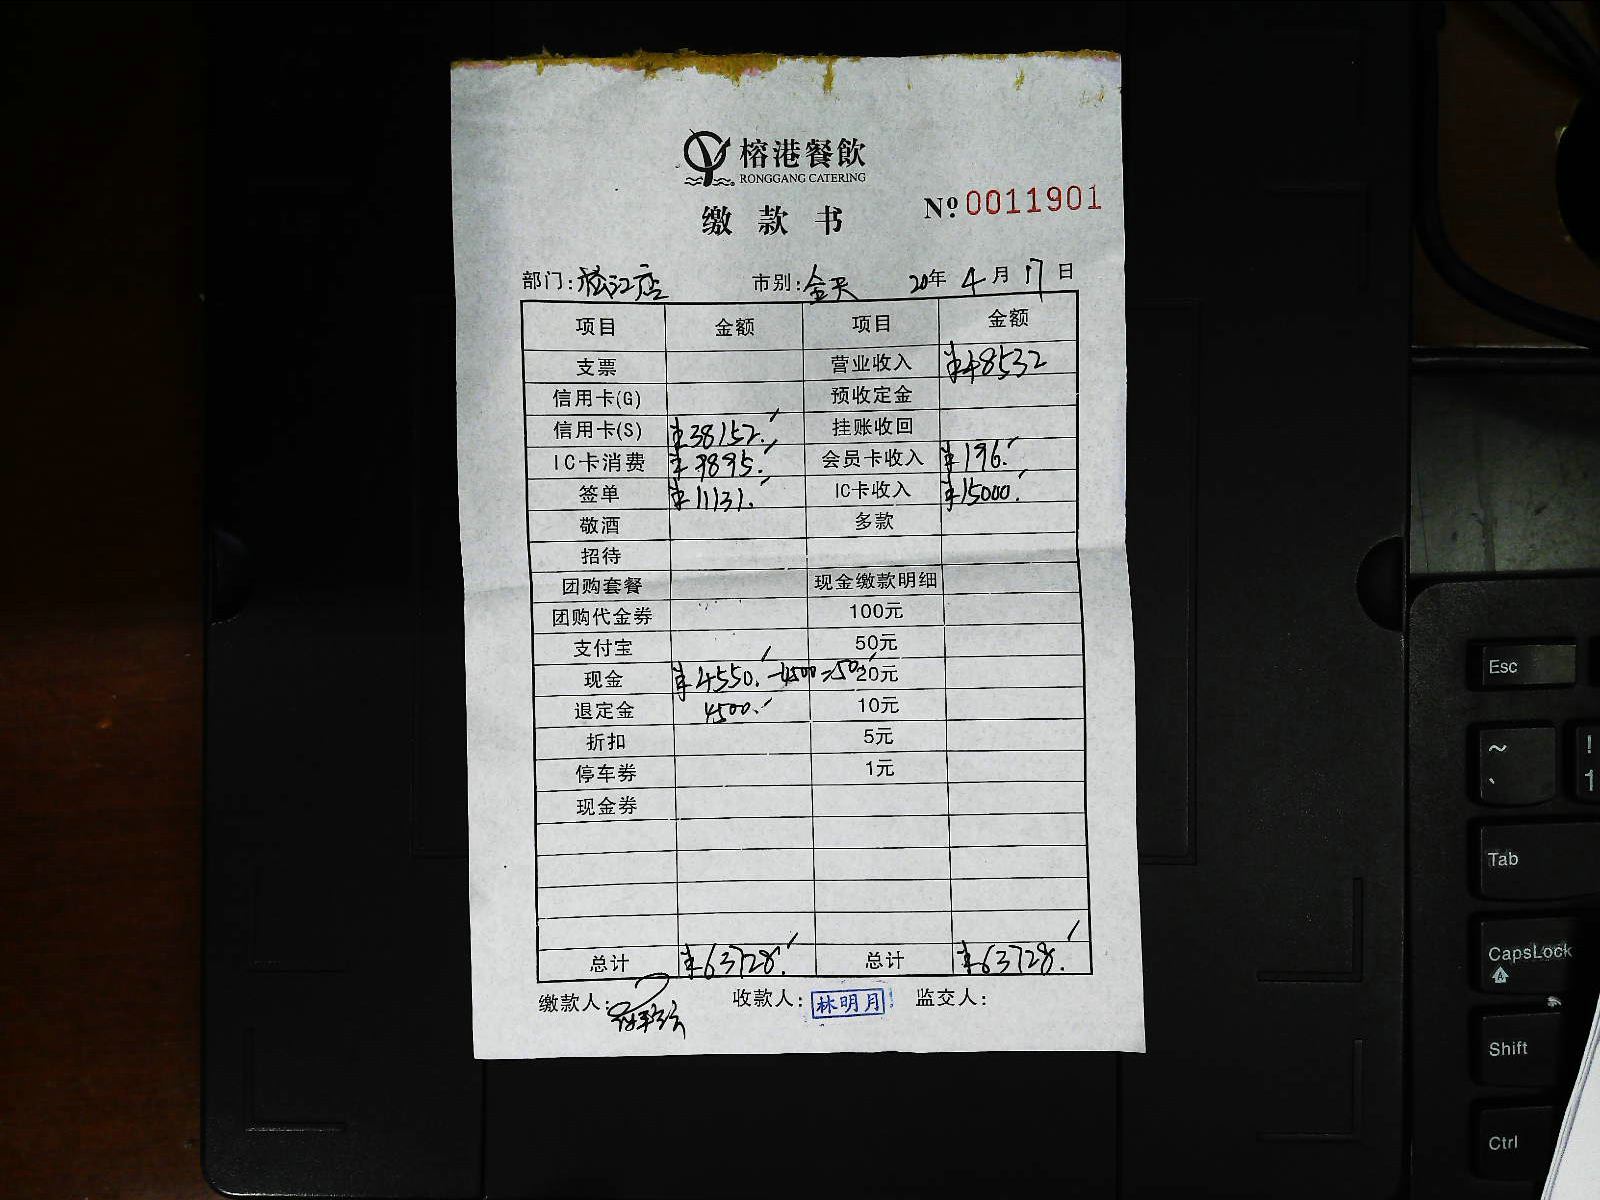 榕港餐飲
RONGGANG CATERING
缴款书 №0011901
部门:松江店 市别:全天 20年4月17日
项目 金额 项目 金额
支票 营业收入 ¥48532
信用卡(G) 预收定金
信用卡(S) ¥38152. 挂账收回
IC卡消费 ¥9895. 会员卡收入 ¥196.
签单 ¥11131. IC卡收入 ¥15000.
敬酒 多款
招待
团购套餐 现金缴款明细
团购代金券 100元
支付宝 50元
现金 ¥4550.-4500=50. 20元
退定金 4500. 10元
折扣 5元
停车券 1元
现金券
总计 ¥63728. 总计 ¥63728.
缴款人: 收款人:林明月 监交人:
Esc
~
、
!
1
Tab
CapsLock
Shift
Ctrl